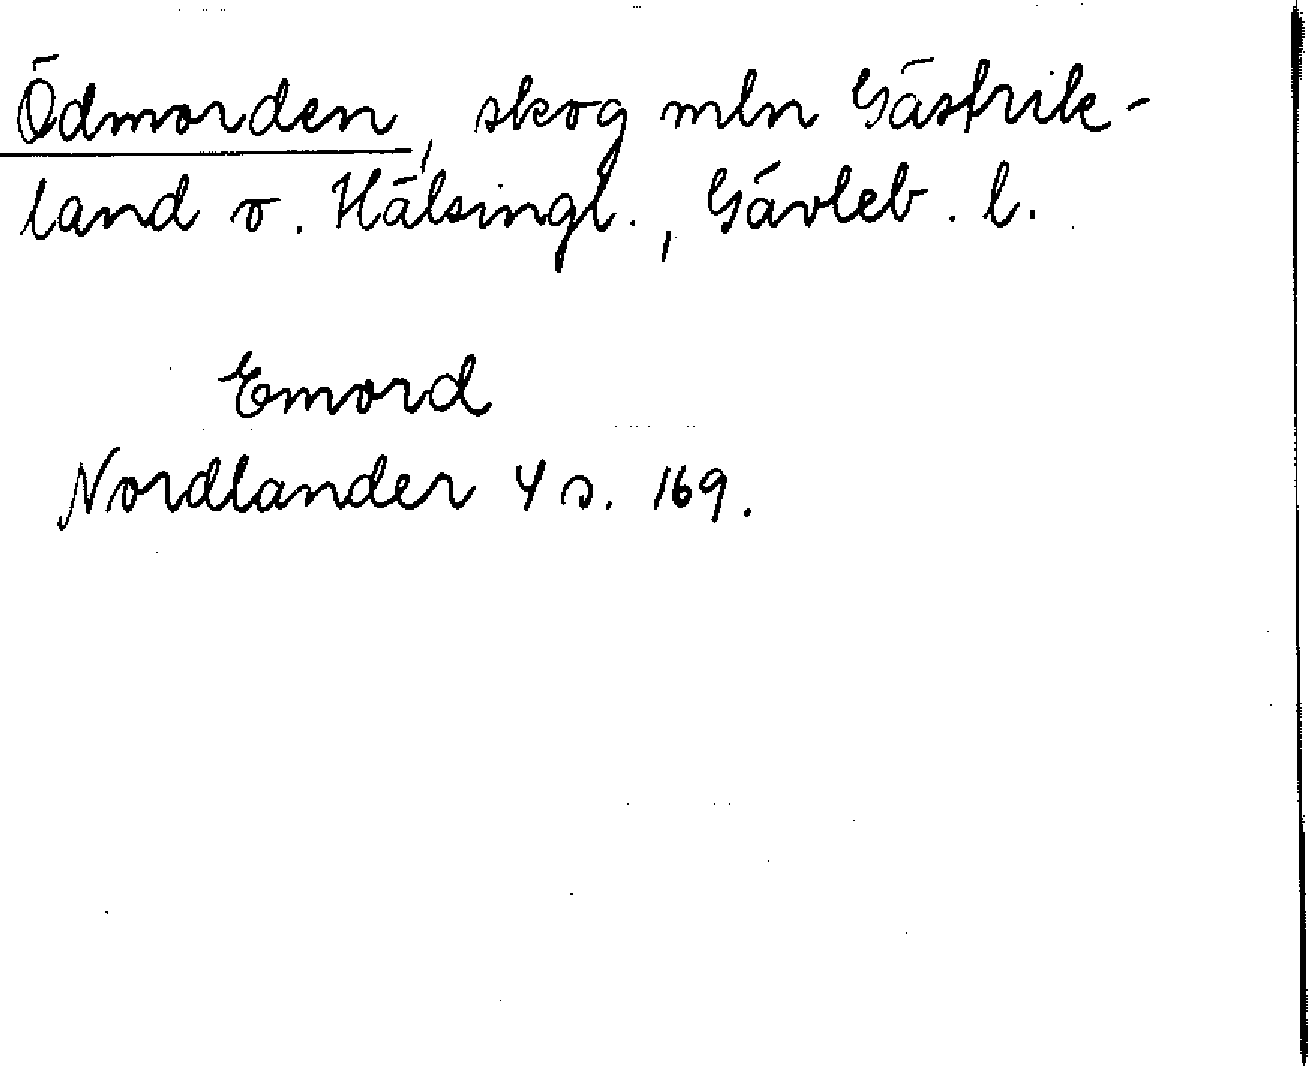 Ödmorden, skog mln Gästrik-
land o. Hälsingl., Gävleb. l.
Emord
Nordlander 4 s. 169.